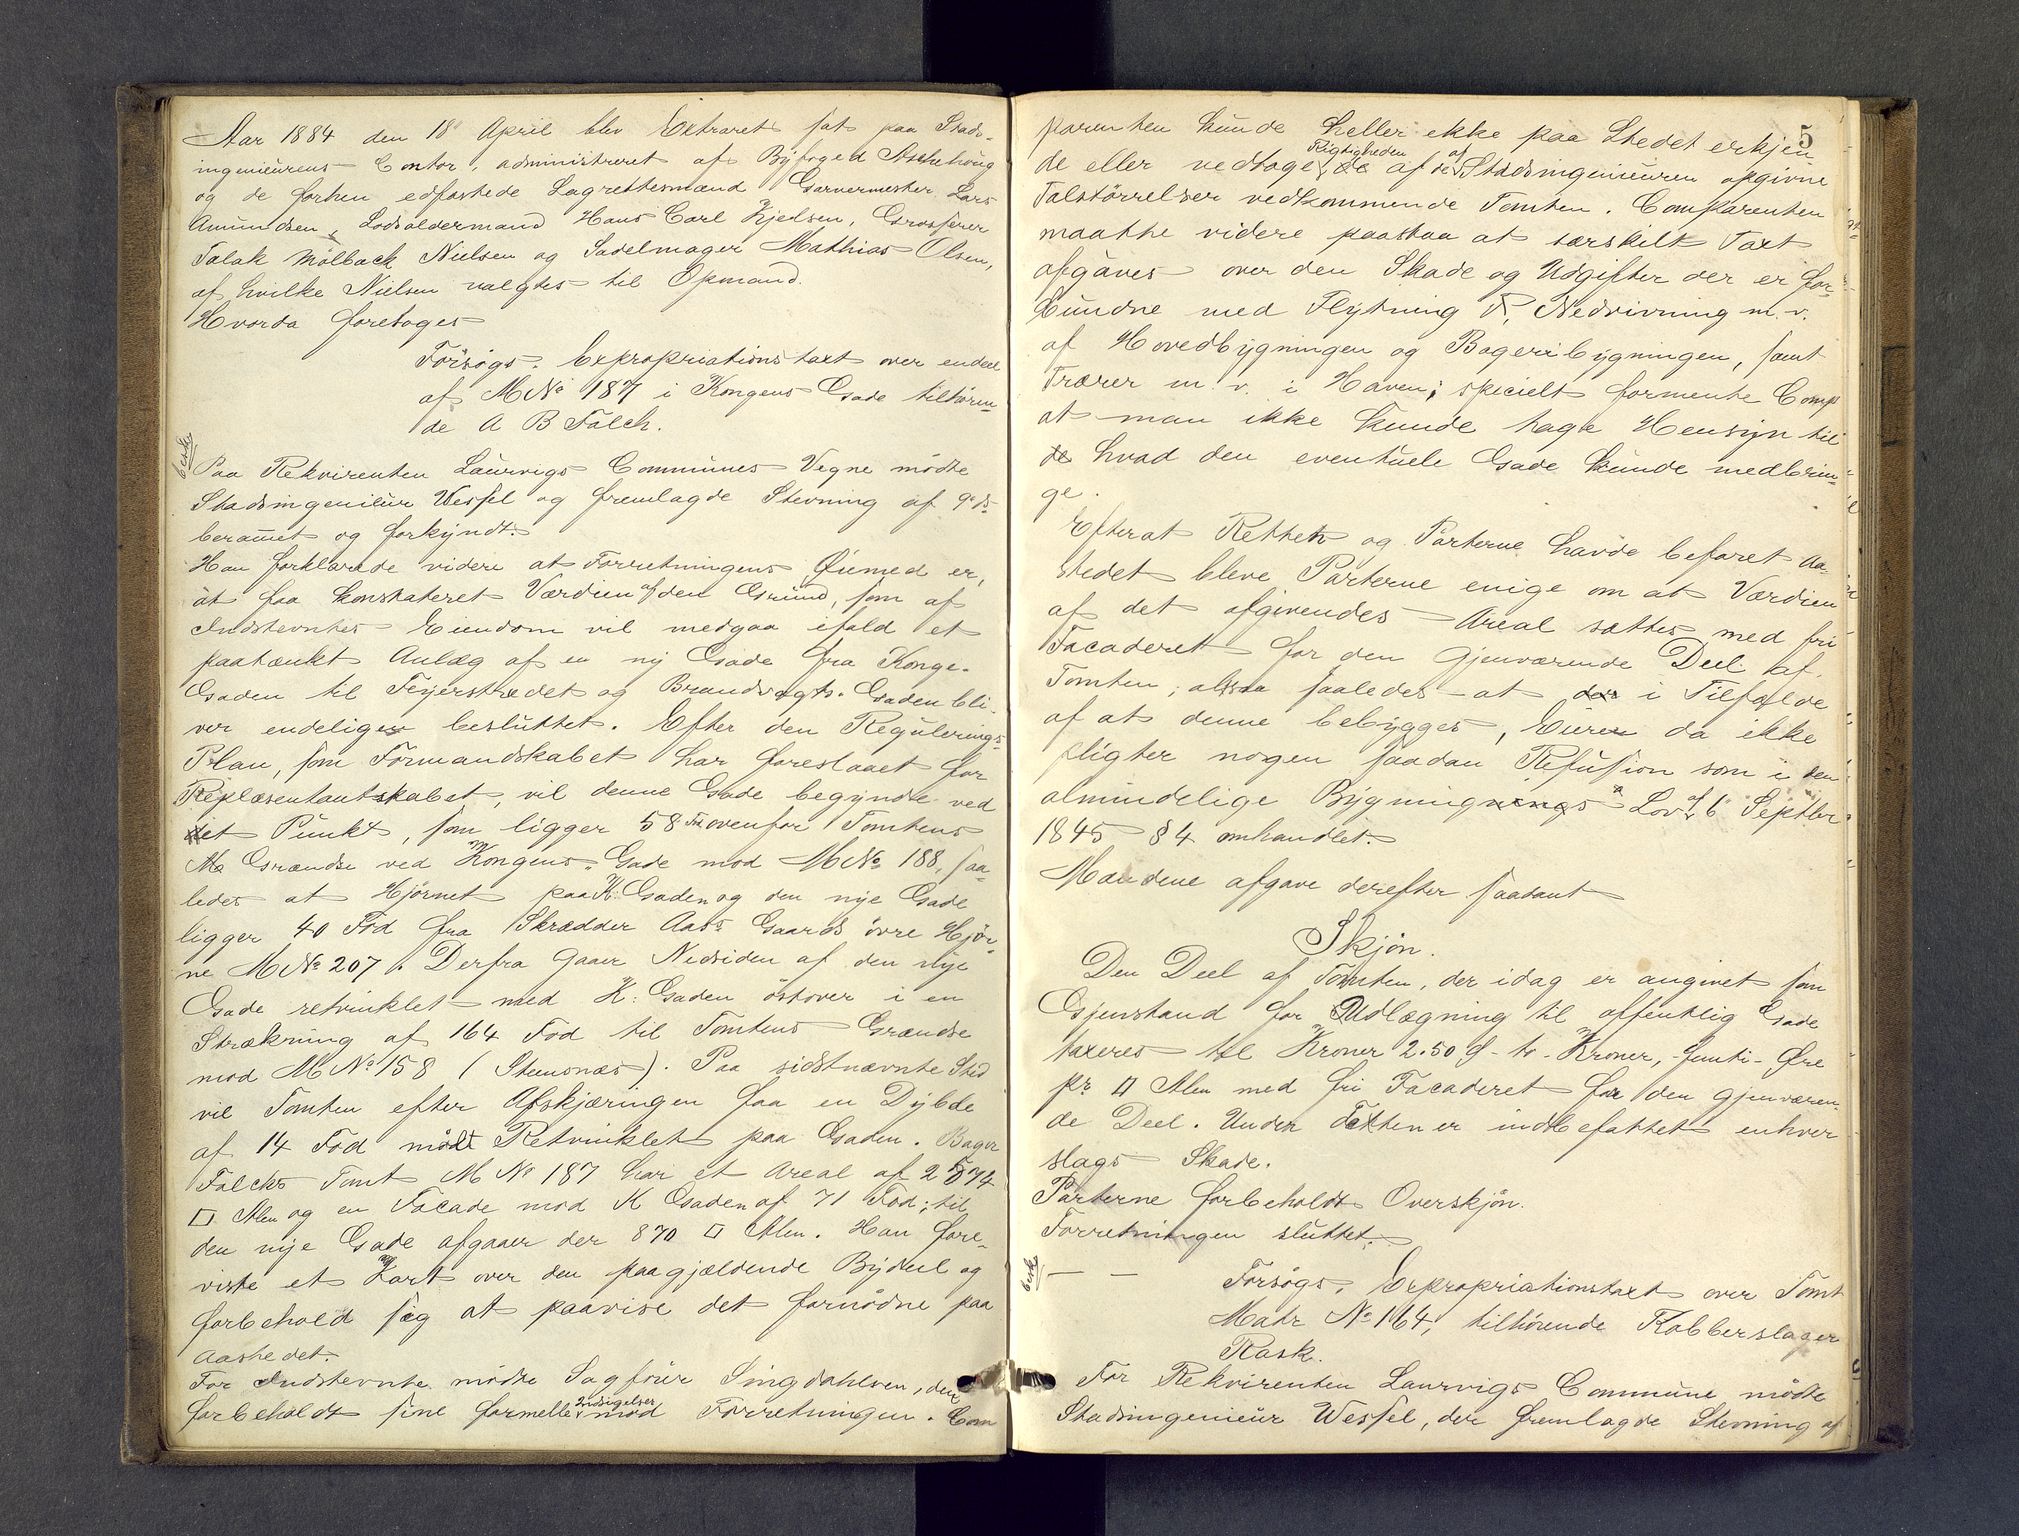 Aar 1884 den 18' April blev Extraret sat paa Stads-
ingenieurens Contor, administreret af Byfoged Aschehoug
og de forhen edfæstede Lagrettesmænd Garvermester Lars
Amundsen, Lodsoldermand Hans Carl Kjelsen, Grosserer
Falak Mølback Nielsen og Sadelmager Mathias Olsen,
af hvilke Nielsen valgtes til Opmand.
Hvorda foretoges
Forsøgs. Expropriationstaxt over endeel
af MNo 187 i Kongens Gade tilhøren-
de A B Falch.
Paa Rekvirenten Laurvigs Communes Vegne mødte
Stadsingenieur Wessel og fremlagde Stevning af 9' ds
beramet og forkyndt.
Han forklarede videre at Forretningens Øiemed er,
at faa konstateret Værdien af den Grund, som af
Indstevntes Eiendom vil medgaa ifald et
paatænkt Anlæg af en ny Gade fra Konge-
Gaden til Fejerstrædet og Brandvagts-Gaden bli-
ver endelig besluttet. Efter den Regulerings-
Plan, som Formandskabet har foreslaaet for
Repræsentantskabet, vil denne Gade begynde ved
et Punkt, som ligger 58 Fod ovenfor Tomtens
Grændse ved Kongens Gade mod MNo 188, saa-
ledes at Hjørnet paa K. Gaden og den nye Gade
ligger 40 Fod fra Skrædder Aas's Gaards øvre Hjør-
ne MNo 207. Derfra gaar Nedsiden af den nye
Gade retvinklet med K: Gaden østover i en
Strækning af 164 Fod til Tomtens Grændse
mod MNo 158 (Stensnæs). Paa sidstnævnte Sted
vil Tomten efter Afskjæringen faa en Dybde
af 14 Fod målt Retvinklet paa Gaden. Bager
Falchs Tomt MNo 187 har et Areal af 2574
□ Alen og en Facade mod K Gaden af 71 Fod; til
den nye Gade afgaaer der 870 □ Alen. Han fore-
viste et Kart over den paagjældende Bydeel og
forbehold sig at paavise det fornødne paa
Aastedet.
For Indstevnte mødte Sagfører Singdahlsen, der
forbeholdt sine formelle Indsigelser mod Forretningen. Com
5
parenten kunde heller ikke paa Stedet erkjen
de eller vedtage Rigtigheden af de af Stadsingenieuren opgivne
Talstørrelser vedkommende Tomten. Comparenten
maatte videre paastaa at særskilt Taxt
afgaves over den Skade og Udgifter der er for-
bundne med Flytning, Nedrivning m. v.
af Hovedbygningen og Bageribygningen, samt
Trærer m. v. i Haven; specielt formente Comp
at man ikke kunde tage Hensyn til
hvad den eventuele Gade kunde medbrin-
ge.
Efterat Retten og Parterne havde befaret Aa-
stedet bleve Parterne enige om at Værdien
af det afgivendes Areal sættes med fri
Facaderet for den gjenværende Deel af
Tomten, altsaa saaledes at i Tilfælde
af at denne bebygges, Eieren da ikke
pligter nogen saadan Refusion som i den
almindelige Bygnings Lov af 6 Septbr
1845 § 4 omhandlet.
Mændene afgave derefter saadant
Skjøn.
Den Deel af Tomten, der idag er angivet som
Gjenstand for Udlægning til offentlig Gade
taxeres til Kroner 2.50 - to - Kroner, femti - Øre
pr □ Alen med fri Facaderet for den gjenværen-
de Deel. Under Taxten er indbefattet enhver
slags Skade.
Parterne forbeholdt Overskjøn.
Forretningen sluttet.
Forsøgs. Expropriationstaxt over Tomt
Matr No 164, tilhørende Kobberslager
Rask.
For Rekvirenten Laurvigs Commune mødte
Stadsingenieur Wessel, der fremlagde Stevning af